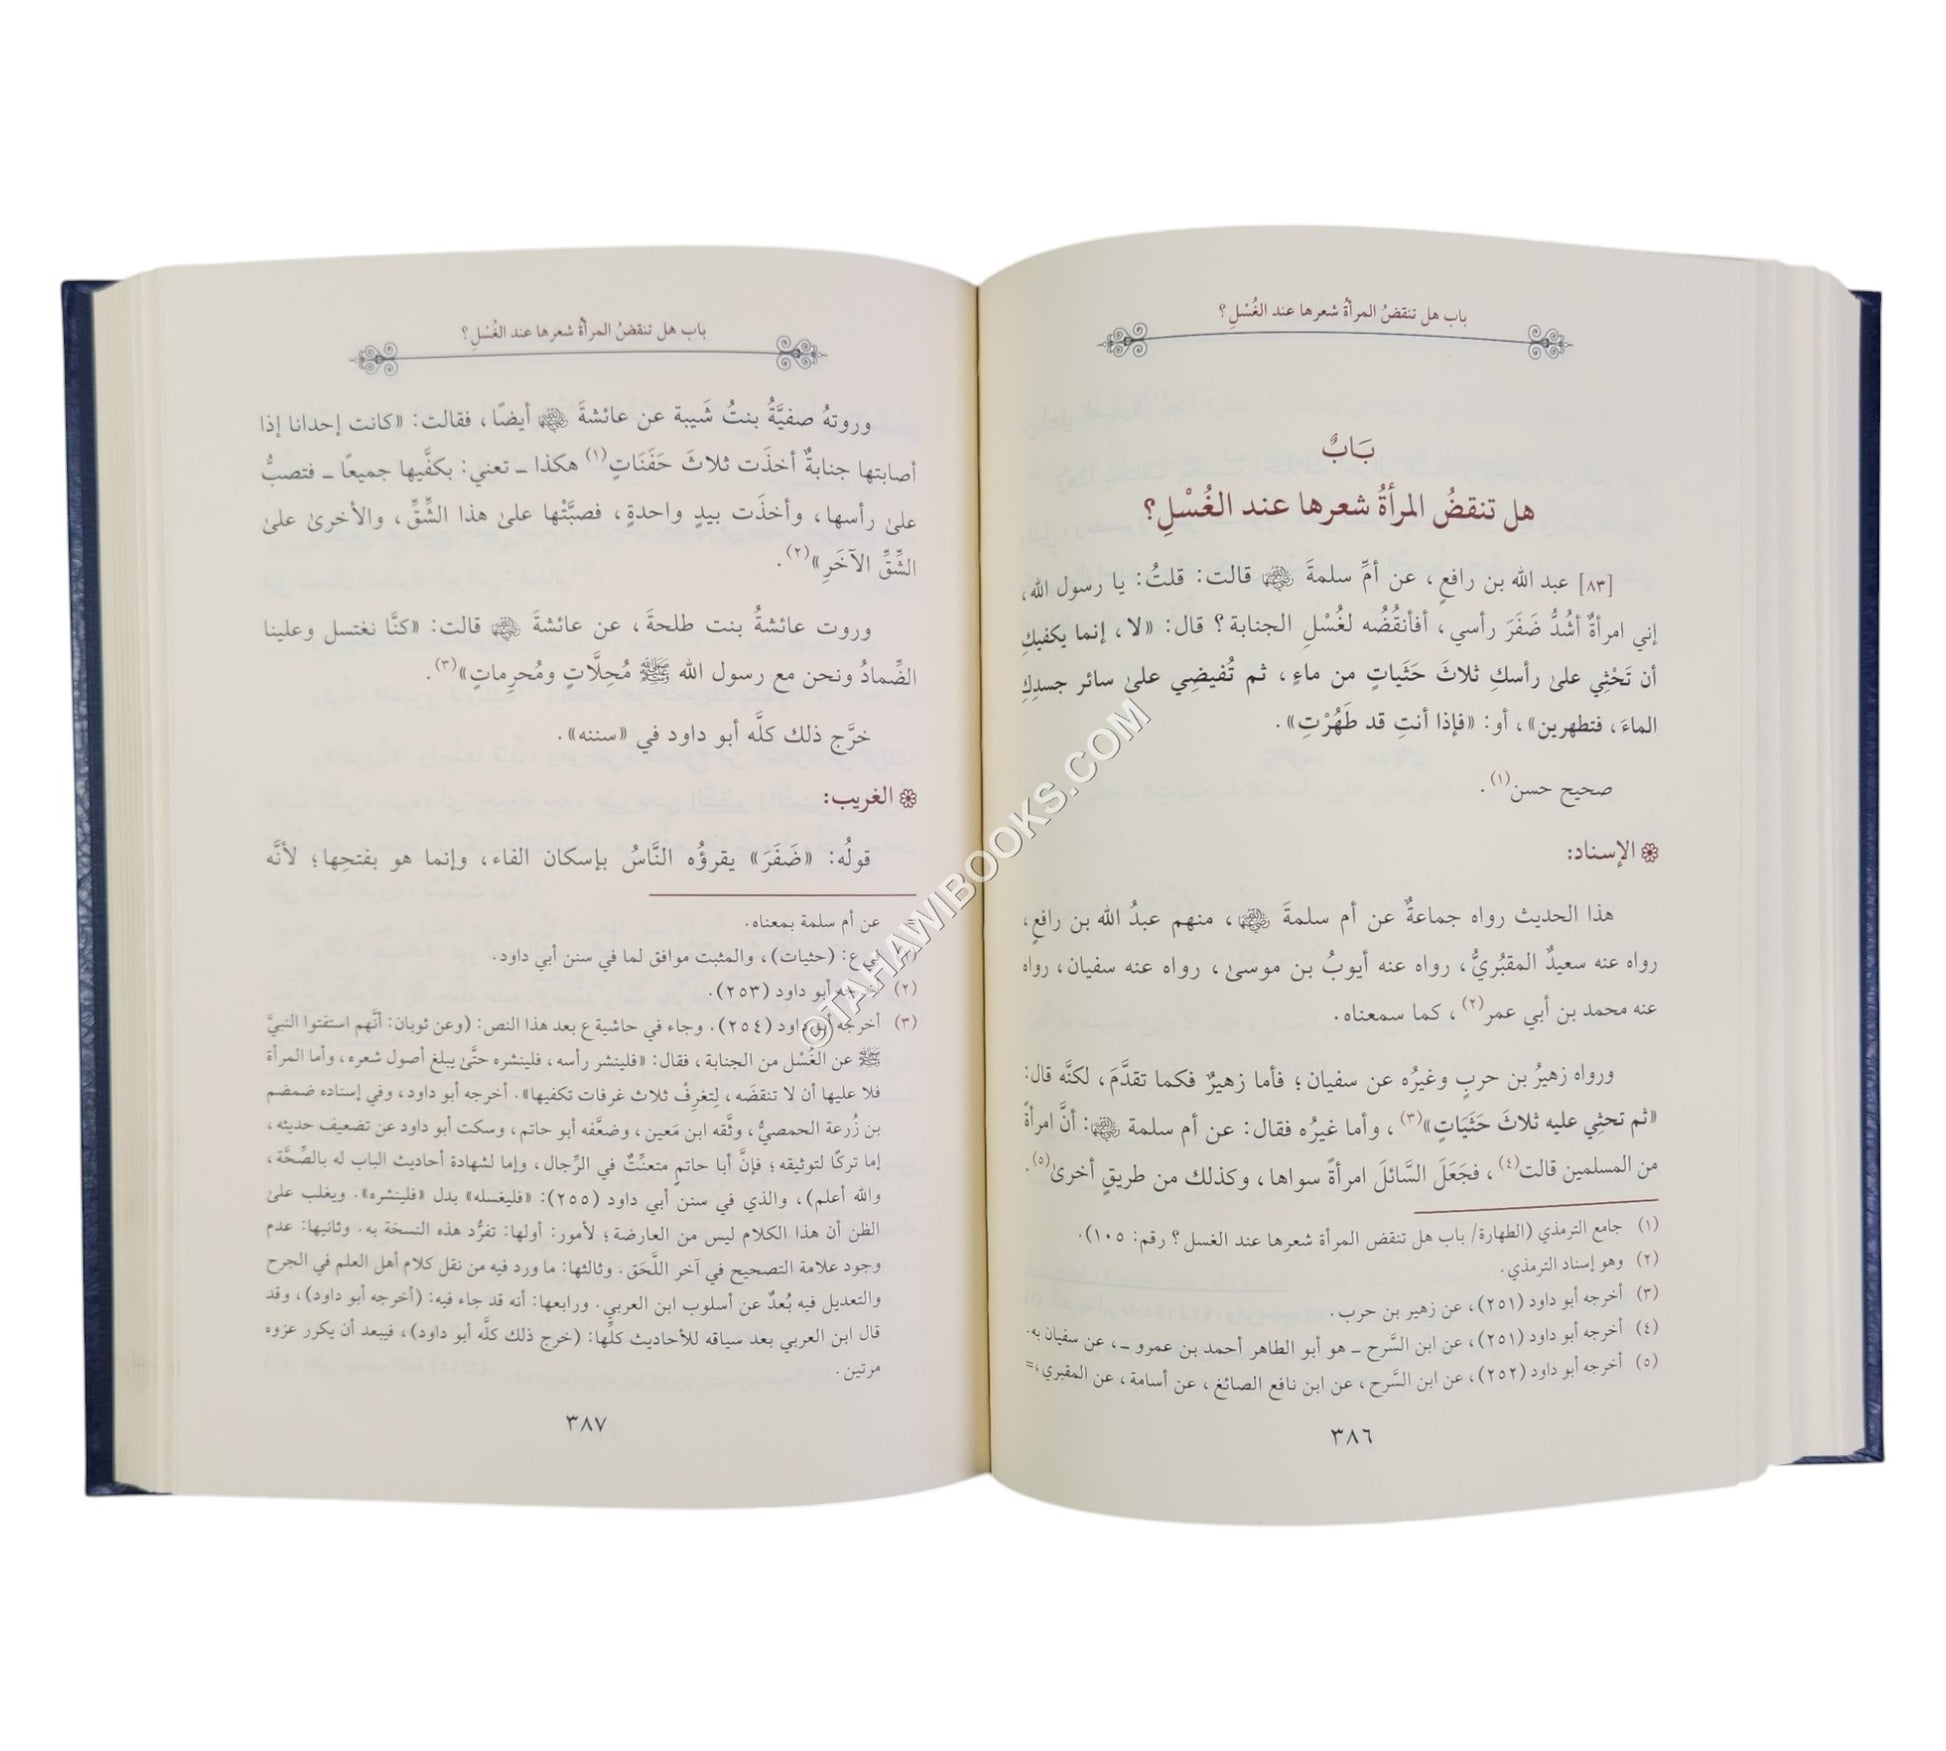 باب هل تنقضُ المرأةُ شعرها عند الغُسْلِ؟
بَابٌ
هل تنقضُ المرأةُ شعرها عند الغُسْلِ؟
[٨٣] عبد الله بن رافعٍ، عن أمِّ سلمةَ ﵂ قالت: قلتُ: يا رسول الله،
إني امرأةٌ أشُدُّ ضَفَرَ رأسي، أفأنقُضُه لغُسْلِ الجنابة؟ قال: «لا، إنما يكفيكِ
أن تَحْثِي علىٰ رأسكِ ثلاثَ حَثَياتٍ من ماءٍ، ثم تُفيضِي علىٰ سائر جسدِكِ
الماءَ، فتطهرين»، أو: «فإذا أنتِ قد طَهُرْتِ».
صحيح حسن(١).
❁ الإسناد:
هذا الحديث رواه جماعةٌ عن أم سلمةَ ﵂، منهم عبدُ الله بن رافعٍ،
رواه عنه سعيدٌ المقبُريُّ، رواه عنه أيوبُ بن موسىٰ، رواه عنه سفيان، رواه
عنه محمد بن أبي عمر(٢)، كما سمعناه.
ورواه زهيرُ بن حربٍ وغيرُه عن سفيان؛ فأما زهيرٌ فكما تقدَّمَ، لكنَّه قال:
«ثم تحثِي عليه ثلاثَ حَثَيَاتٍ»(٣)، وأما غيرُه فقال: عن أم سلمة ﵂: أنَّ امرأةً
من المسلمين قالت(٤)، فجَعَلَ السَّائلَ امرأةً سواها، وكذلك من طريقٍ أخرىٰ(٥).
(١) جامع الترمذي (الطهارة/ باب هل تنقض المرأة شعرها عند الغسل؟ رقم: ١٠٥).
(٢) وهو إسناد الترمذي.
(٣) أخرجه أبو داود (٢٥١)، عن زهير بن حرب.
(٤) أخرجه أبو داود (٢٥١)، عن ابن السَّرح ـ هو أبو الطاهر أحمد بن عمرو ـ، عن سفيان به.
(٥) أخرجه أبو داود (٢٥٢)، عن ابن السَّرح، عن ابن نافع الصائغ، عن أسامة، عن المقبري،=
٣٨٦
باب هل تنقضُ المرأةُ شعرها عند الغُسْلِ؟
وروتهُ صفيَّةُ بنتُ شَيبة عن عائشةَ ﵂ أيضًا، فقالت: «كانت إحدانا إذا
أصابتها جنابةٌ أخذَت ثلاثَ حَفَنَاتٍ(١) هكذا ـ تعني: بكفَّيها جميعًا ـ فتصبُّ
علىٰ رأسها، وأخذَت بيدٍ واحدةٍ، فصبَّتْها علىٰ هذا الشِّقِّ، والأخرىٰ علىٰ
الشِّقِّ الآخَرِ»(٢).
وروت عائشةُ بنت طلحةَ، عن عائشةَ ﵂ قالت: «كنَّا نغتسل وعلينا
الضِّمادُ ونحن مع رسول الله ﷺ مُحِلَّاتٍ ومُحرِماتٍ»(٣).
خرَّج ذلك كلَّه أبو داود في «سننه».
❁ الغريب:
قولُه: «ضَفَرَ» يقرؤُه النَّاسُ بإسكان الفاء، وإنما هو بفتحِها؛ لأنَّه
= عن أم سلمة بمعناه.
ع: (حثيات)، والمثبت موافق لما في سنن أبي داود.
(٢) أخرجه أبو داود (٢٥٣).
(٣) أخرجه أبو داود (٢٥٤). وجاء في حاشية ع بعد هذا النص: (وعن ثوبان: أنَّهم استفتوا النبيَّ
ﷺ عن الغُسْل من الجنابة، فقال: «فلينشر رأسه، فلينشره حتَّىٰ يبلغ أصول شعره، وأما المرأة
فلا عليها أن لا تنقضَه، لِتغرِفْ ثلاث غرفات تكفيها». أخرجه أبو داود، وفي إسناده ضمضم
بن زُرعة الحمصيُّ، وثَّقه ابن مَعين، وضعَّفه أبو حاتم، وسكت أبو داود عن تضعيف حديثه،
إما تركًا لتوثيقه؛ فإنَّ أبا حاتمٍ متعنِّتٌ في الرِّجال، وإما لشهادة أحاديث الباب له بالصِّحَّة،
والله أعلم)، والذي في سنن أبي داود (٢٥٥): «فليغسله» بدل «فلينشره». ويغلب علىٰ
الظن أن هذا الكلام ليس من العارضة؛ لأمور: أولها: تفرُّد هذه النسخة به. وثانيها: عدم
وجود علامة التصحيح في آخر اللَّحَق. وثالثها: ما ورد فيه من نقل كلام أهل العلم في الجرح
والتعديل فيه بُعدٌ عن أسلوب ابن العربي. ورابعها: أنه قد جاء فيه: (أخرجه أبو داود)، وقد
قال ابن العربي بعد سياقه للأحاديث كلِّها: (خرج ذلك كلَّه أبو داود)، فيبعد أن يكرر عزوه
مرتين.
٣٨٧
©TAHAWIBOOKS.COM